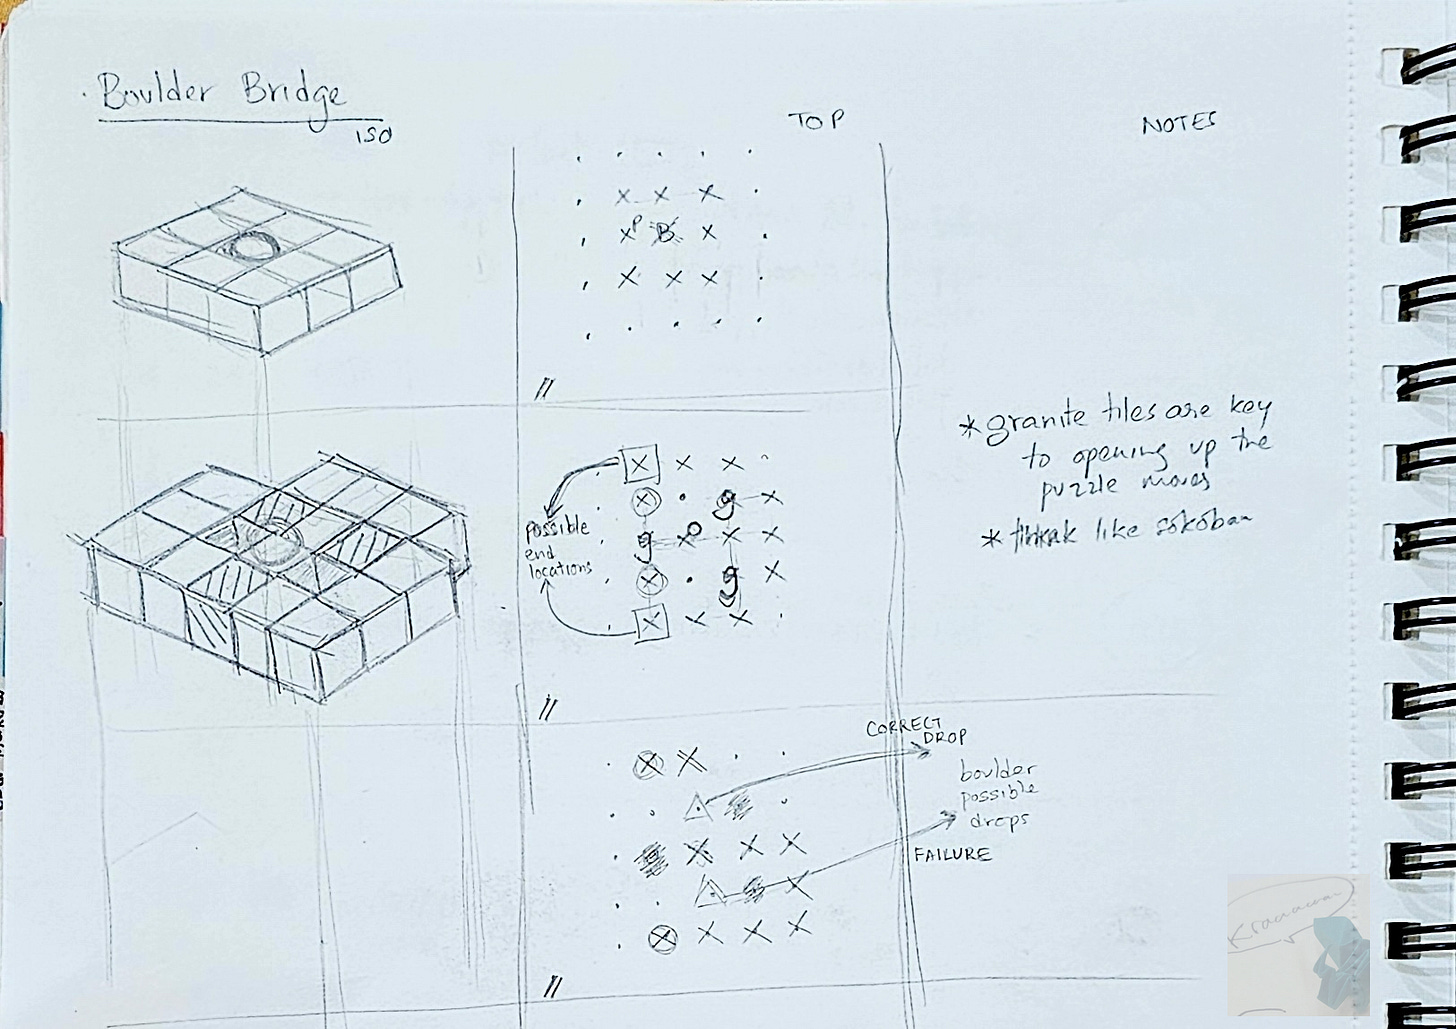 · Boulder Bridge
ISO
TOP
NOTES
. . . . .
. x x x .
. x P B x .
. x x x .
. . . . .
//
* granite tiles are key
to opening up the
puzzle moves
* think like sokoban
. X X X .
. X . g X
. g X O X X
. X . g X
. X X X .
possible
end
locations
//
CORRECT
DROP
boulder
possible
drops
FAILURE
. X X . .
. . . .
. X X X
. . X
. X X X X
//
Kraaawan